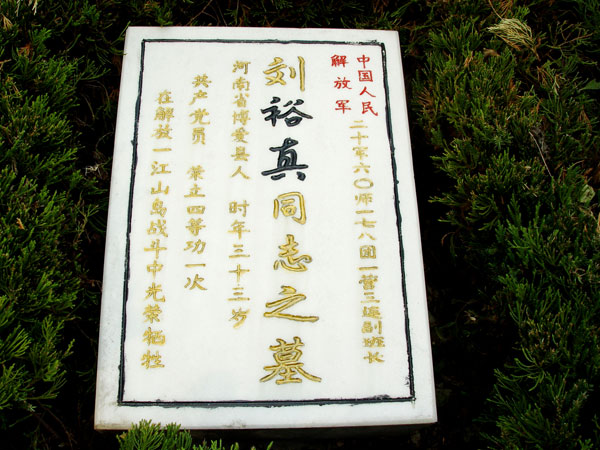 中国人民
解放军
二十军六〇师一七八团一营三连副班长
刘裕真同志之墓
河南省博爱县人 时年三十三岁
共产党员 荣立四等功一次
在解放一江山岛战斗中光荣牺牲